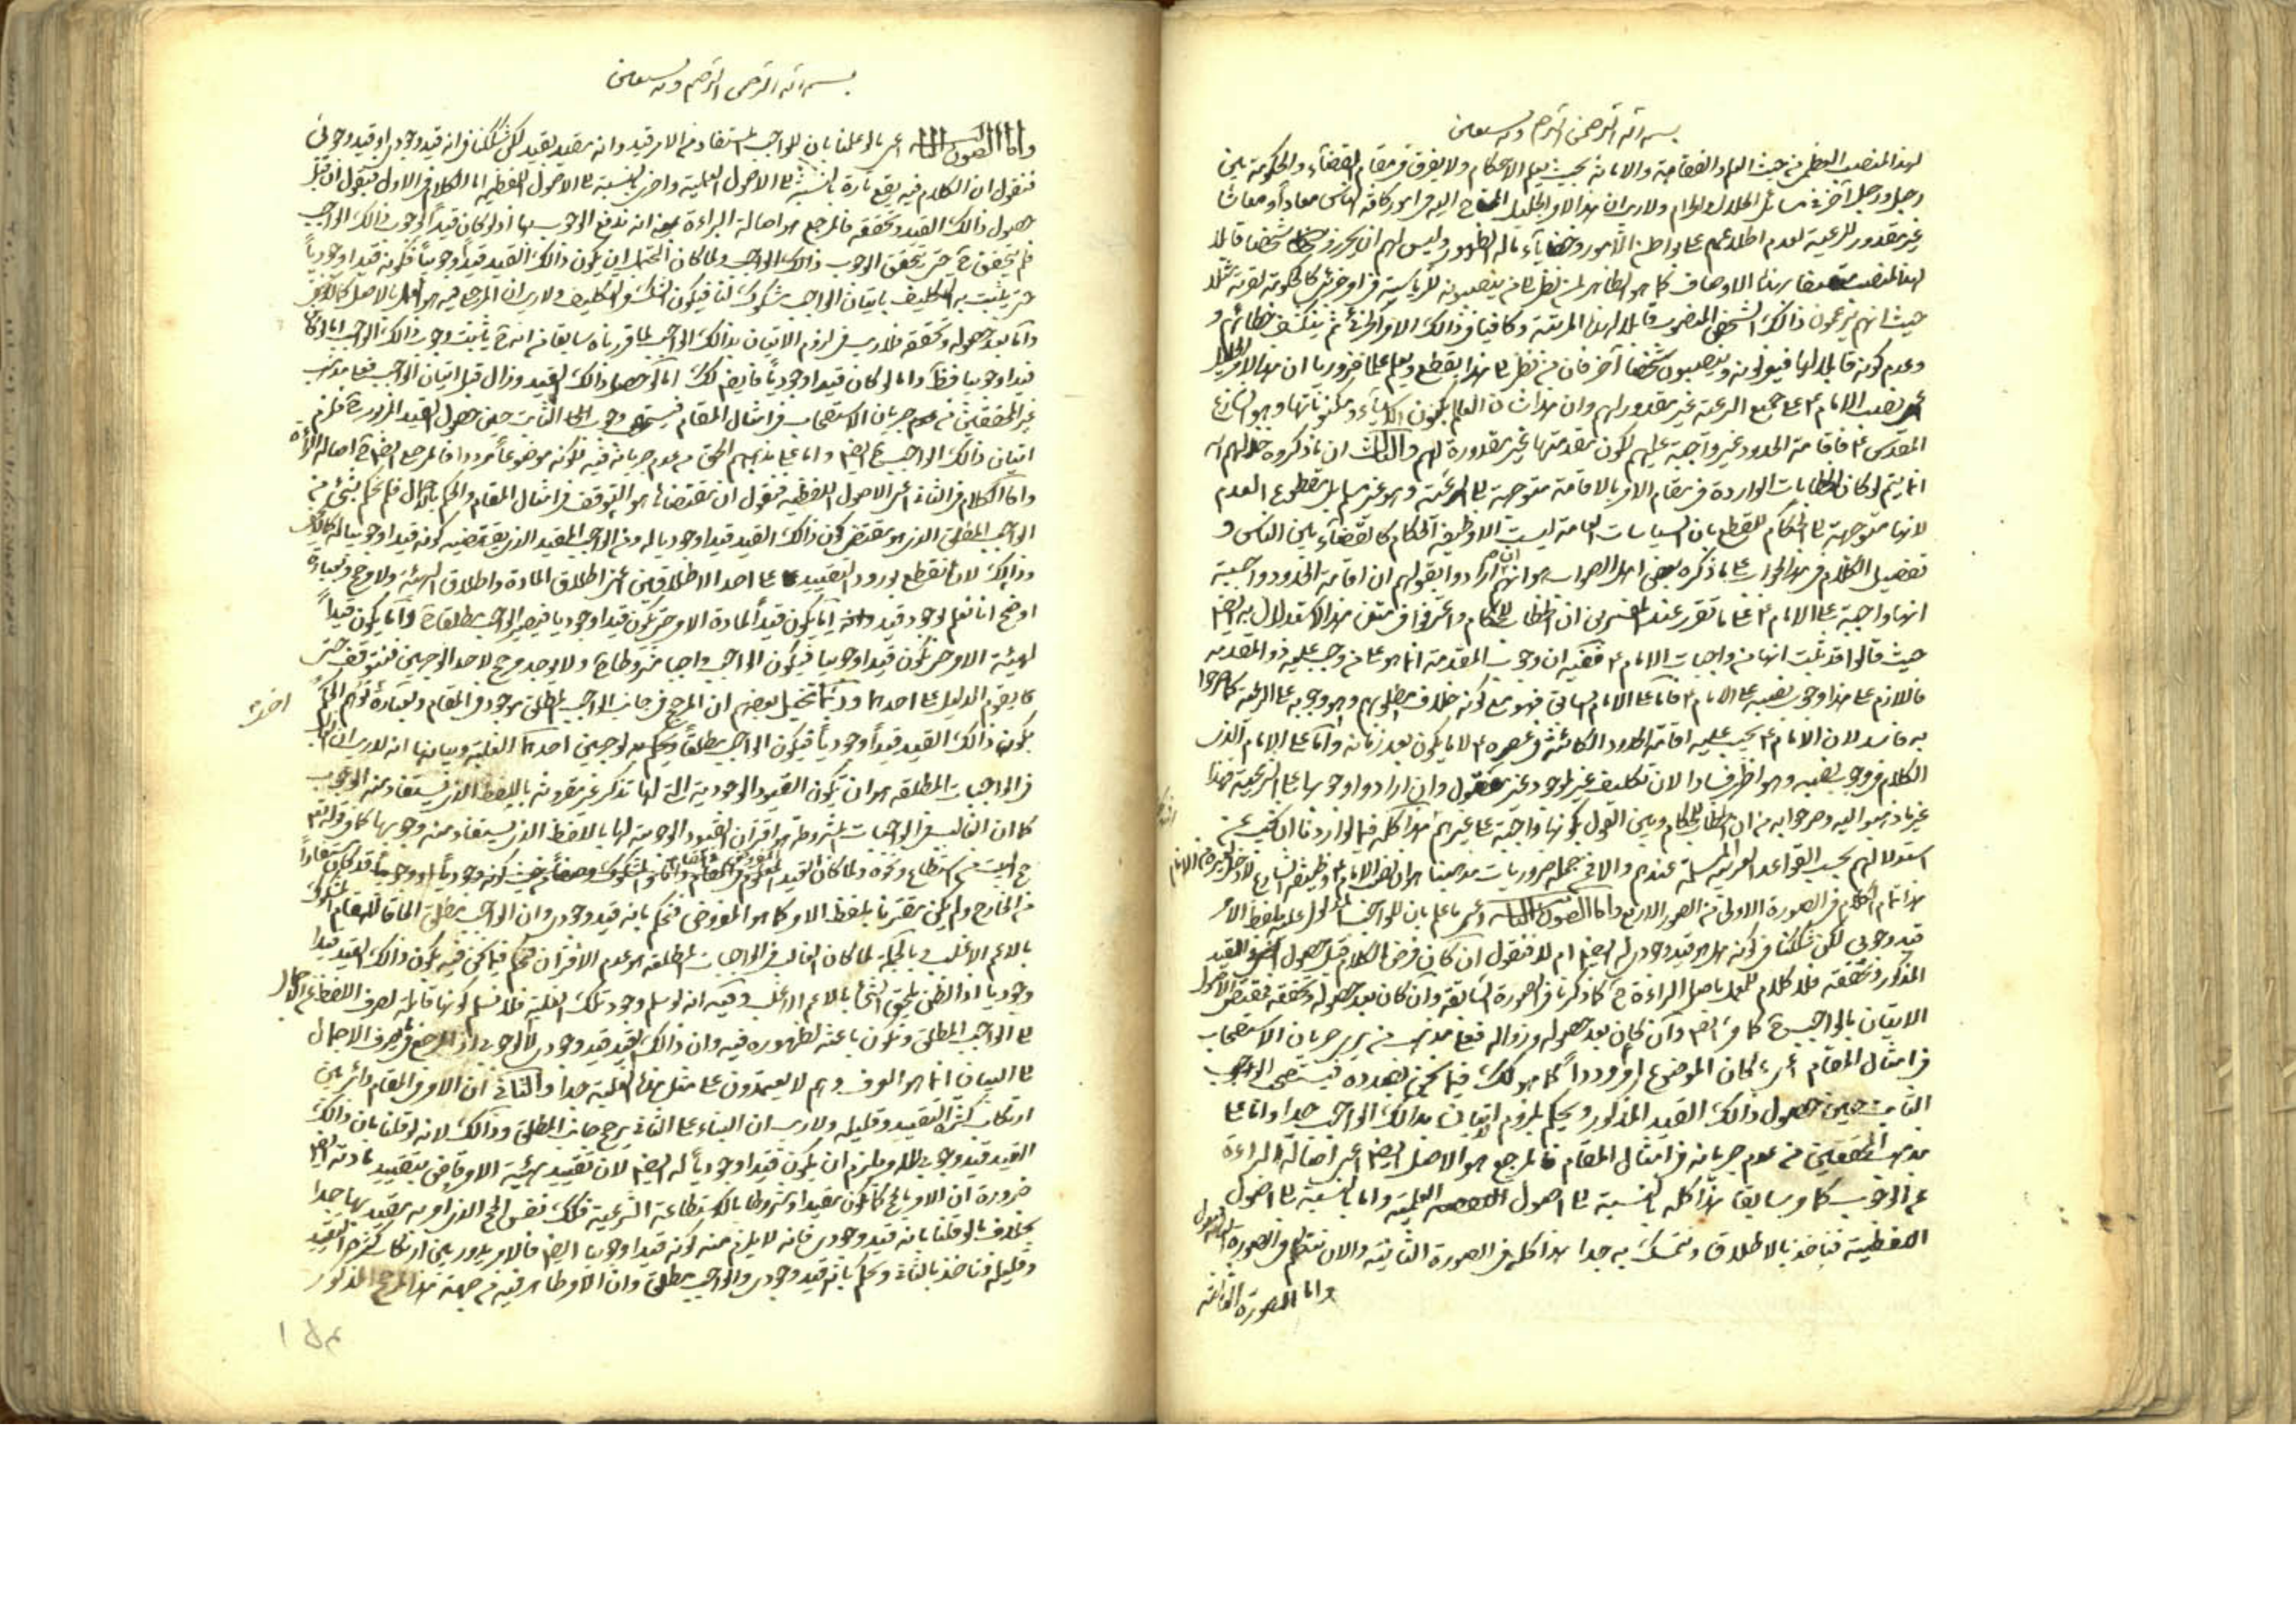 بسم الله الرحمن الرحيم وبه نستعين
لهذا المنصب العظمى من حيث العلم والفقاهة والامانة بحيث يعلم الاحكام ولا يفرق فى مقام القضاء والحكومة بين
رجل ورجل آخر فى مسائل الحلال والحرام ولا ريب ان هذا الامر الجليل المحتاج اليه فى امور كافة الناس معاداً ومعاشا
غير مقدور للرعية لعدم اطلاعهم على بواطن الامور وخفايا ما له الظهور وليس لهم ان شخصا قابلا
لهذا المنصب متصفا بهذه الاوصاف كما هو الظاهر لمن نظر الى من ينصبونه للرياسة فى امر جزئى كالحكومة لقرية مثلا
حيث انهم يزعمون ذلك الشخص المنصوب قابلا لهذه المرتبة وكافيا فى ذلك الامر الجزئى ثم ينكشف خطائهم و
وعدم كونه قابلا لها فيعزلونه وينصبون شخصا آخر فان من نظر الى هذا يقطع ويعلم علما ضروريا ان هذا الامر
نصب الامام ع على جميع الرعية غير مقدور لهم وان هذا شان العالم ومكنوناتها وهو الشارع
المقدس ع فاقامة الحدود غير واجبة عليهم لكون مقدمتها غير مقدورة لهم والثالث ان ما ذكروه
انما يتم لو كان الخطابات الواردة فى مقام الامر بالاقامة متوجهة الى الرعية وهو غير مسلم بل مقطوع العدم
لانها متوجهة الى الحكام للقطع بان السياسات العامة ليست الا وظيفة الحكام كالقضاء بين الناس و
تفصيل الكلام فى هذا الجواب على ما ذكره بعض اهل الصواب هو انهم ان ارادوا بقولهم ان اقامة الحدود واجبة
انها واجبة على الامام ع على ما تقرر عند المفسرين ان الخطاب للحكام واعترفوا فى متن هذا الاستدلال به ايضا
حيث قالوا قد ثبت انها من واجبات الامام ع ففيه ان وجوب المقدمة انما هو على من وجب عليه ذو المقدمة
فاللازم على هذا وجوب نصبه على الامام ع فاما على الامام السابق فهو مع كونه خلاف مطلوبهم وهو وجوبه على الرعية كما صرحوا
به فاسد لان الامام ع يجب عليه اقامة الحدود الكائنة فى عصره ع لا ما يكون بعد زمانه واما على الامام الذى
الكلام فى وجوب نصبه وهو اظهر فسادا لان تكليف غير الموجود غير معقول وان ارادوا وجوبها على الرعية فهذا
غير ما ذهبوا اليه وصرحوا به من ان الخطاب للحكام وبين القول بكونها واجبة على غيرهم هذا كله فيما اردنا ان نجيب عن
استدلالهم بحسب القواعد المسلمة عندهم والا فى جملة ضروريات مذهبنا هو ان نصب الامام ع وظيفة الشارع لا دخل لغيره من الانام
هذا تمام الكلام فى الصورة الاولى من الصور الاربع واما الصورة الثانية اعنى ما علم بان للواجب المدلول عليه بلفظ الامر
قيد وجوبى لكن شككنا فى كونه هل هو قيد وجودى له ايضا ام لا فنقول ان كان فرض الكلام قبل حصول القيد
المذكور وتحققه فلا كلام للعمل باصل البراءة ح كما ذكرنا فى الصورة السابقة وان كان بعد حصوله وتحققه فمقتضى الاصول
الاتيان بالواجب ح كما مر ايضا وان كان بعد حصوله وزواله فعلى مذهب من يرى جريان الاستصحاب
فى امثال المقام اى ما كان الموضوع امرا مرددا كما هو كذلك فيما نحن بصدده فيستصحب الوجوب
الثابت حين حصول ذلك القيد المذكور ويحكم بلزوم الاتيان بذلك الواجب جدا واما على
مذهب المحققين من عدم جريانه فى امثال المقام فالمرجع هو الاصل ايضا اعنى اصالة البراءة
عن الوجوب كما مر سابقا هذا كله بالنسبة الى اصول العملية واما بالنسبة الى اصول
اللفظية فناخذ بالاطلاق ونتمسك به جدا هذا كله فى الصورة الثانية والان نتكلم فى الصورة
واما الصورة الثالثة
بسم الله الرحمن الرحيم وبه نستعين
واما الصورة الثالثة اعنى ما لو علمنا بان للواجب المستفاد من الامر قيد وانه مقيد بقيد لكن شككنا فى انه قيد وجودى او قيد وجوبى
فنقول ان الكلام فيه يقع تارة بالنسبة الى الاصول العملية واخرى بالنسبة الى الاصول اللفظية اما الكلام فى الاول فنقول ان قبل
حصول ذلك القيد وتحققه فالمرجع هو اصالة البراءة بمعنى انه ندفع الوجوب بها اذ لو كان قيداً لوجوب ذلك الواجب
فلم يتحقق ح حتى يتحقق الوجوب ذلك الواجب ولما كان المحتمل ان يكون ذلك القيد قيداً وجوبياً فكونه قيدا وجودياً
حتى يثبت به التكليف باتيان الواجب مشكوك لنا فيكون الشك فى التكليف ولا ريب ان المرجع فيه هو العمل بالاصل
واما بعد حصوله وتحققه فلا ريب فى لزوم الاتيان بذلك الواجب لما قررناه سابقا من انه ح يثبت وجوب ذلك الواجب اما لو كان
قيدا وجوبيا فظاهر واما لو كان قيدا وجودياً فايضا كذلك اما لو حصل ذلك القيد وزال قبل اتيان الواجب فعلى مذهب
غير المحققين من جريان الاستصحاب فى امثال المقام فيستصحب وجوب الثابت حين حصول القيد المزبور ح فيلزم
اتيان ذلك الواجب ح ايضا واما على مذهبهم الحق من عدم جريانه فيه لكونه موضوعاً مرددا فالمرجع ايضا ح اصالة البراءة
واما الكلام فى الثانى اعنى الاصول اللفظية فنقول ان مقتضاها هو التوقف فى امثال المقام والحكم بالاجمال فلم نحكم بشئ من
الواجب المطلق الذى هو مقتضى كون ذلك القيد قيدا وجوديا له ومن الواجب المقيد الذى يقتضيه كونه قيدا وجوبيا له
وذلك لانا نقطع بورود التقييد على احد الاطلاقين اعنى اطلاق المادة واطلاق الهيئة ولا مرجح وبعبارة
اوضح انا نعلم بوجود قيد وانه اما يكون قيداً لمادة الامر حتى يكون قيدا وجوديا فيصير الواجب مطلقا ح واما يكون قيداً
لهيئة الامر حتى يكون قيدا وجوبيا فيكون الواجب واجبا مشروطا ح ولا يوجد مرجح لاحد الوجهين فنتوقف حتى
يقوم الدليل على احدهما وربما تخيل بعضهم ان المرجح فى جانب الواجب المطلق موجود فى المقام وبعبارة اخرى الحكم
بكون ذلك القيد قيداً وجودياً فيكون الواجب مطلقاً ويحكم به لوجهين احدهما الغلبة وبيانها انه لا ريب ان الغالب
فى الواجبات المطلقة هو ان يكون القيود الوجودية التى لها تذكر غير مقرونة باللفظ الذى يستفاد منه الوجوب
كما ان الغالب فى الواجبات المشروطة هو اقتران القيود الوجوبية لها باللفظ الذى يستفاد منه وجوبها كما فى قوله تعالى
حج البيت من استطاع ونحوه ولما كان القيد المشكوك من حيث كونه وجودياً او وجوبياً قد كان مستفاداً
من الخارج ولم يكن مقترنا بلفظ الامر كما هو المفروض فنحكم بانه قيد وجودى وان الواجب مطلق الحاقا للمقام المشكوك
بالاعم الاغلب وبالجملة لما كان الغالب فى الواجبات المطلقة هو عدم الاقتران فنحكم فيما نحن فيه بكون ذلك القيد قيدا
وجودياً اذ الظن يلحق الشئ بالاعم الاغلب وفيه انه لو سلم وجود تلك الغلبة فلا نسلم كونها قابلة لصرف اللفظ عن الاجمال
الى الواجب المطلق وتكون باعثة لظهوره فيه وان ذلك القيد قيد وجودى لا الوجوبى اذ المرجع فى صرف الاجمال
الى البيان انما هو العرف وهم لا يعتمدون على مثل هذه الغلبة جدا والثانى ان الامر فى المقام دائر بين
ارتكاب كثرة التقييد وقليله ولا ريب ان البناء على الثانى يرجح جانب المطلق وذلك لانه لو قلنا بان ذلك
القيد قيد وجوبى له ويلزم ان يكون قيدا وجودياً له ايضا لان تقييد هيئة الامر قاض بتقييد مادته ايضا
ضرورة ان الامر بالحج كما يكون مقيدا ومشروطا بالاستطاعة الشرعية فكذلك نفس الحج الذى امر به مقيد بها جدا
بخلاف ما لو قلنا بانه قيد وجودى فانه لا يلزم منه كونه قيدا وجوبيا ايضا فالامر يدور بين ارتكاب كثرة التقييد
وقليله فناخذ بالثانى ونحكم بانه قيد وجودى والواجب مطلق وان الامر ظاهر فيه من جهة هذا المرجح المذكور